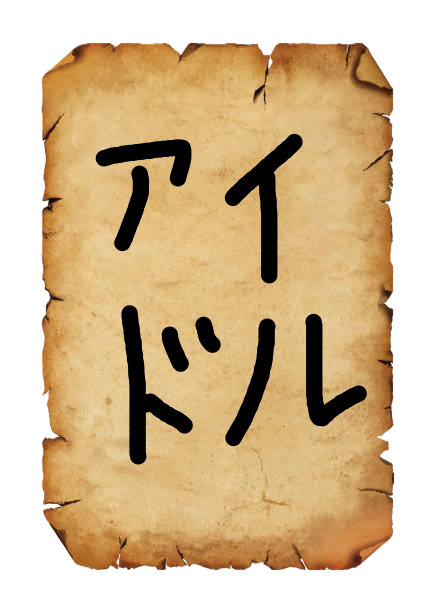 アイ
ドル